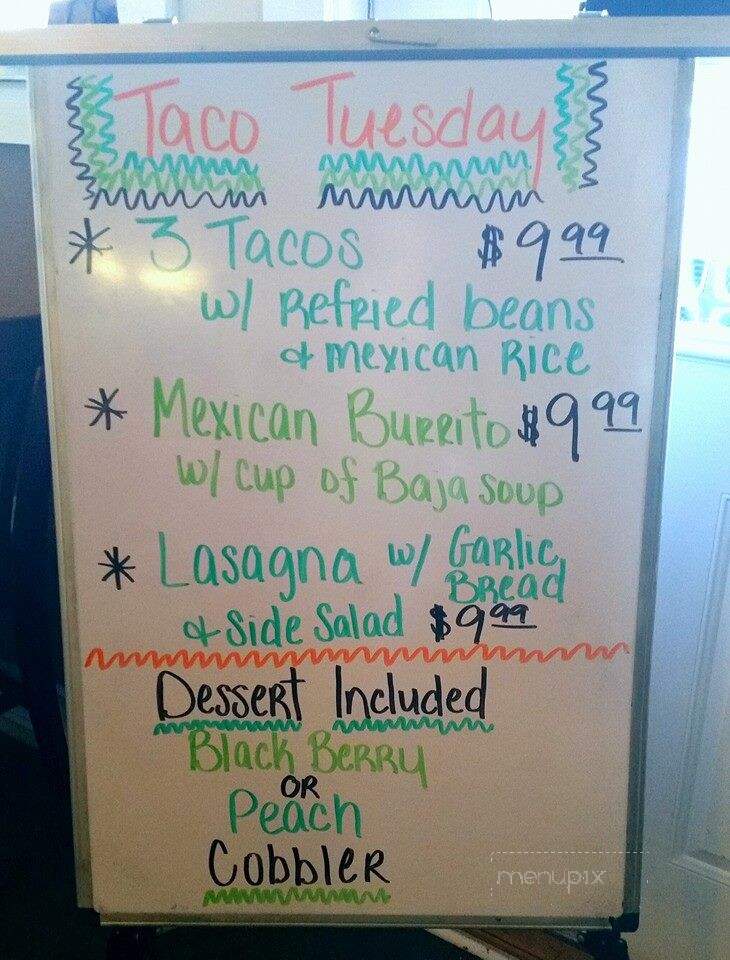 Taco Tuesday
* 3 Tacos $9.99
w/ Refried beans
& Mexican Rice
* Mexican Burrito $9.99
w/ cup of Baja soup
* Lasagna w/ Garlic
Bread
& Side Salad $9.99
Dessert Included
Black Berry
OR
Peach
Cobbler
menupix